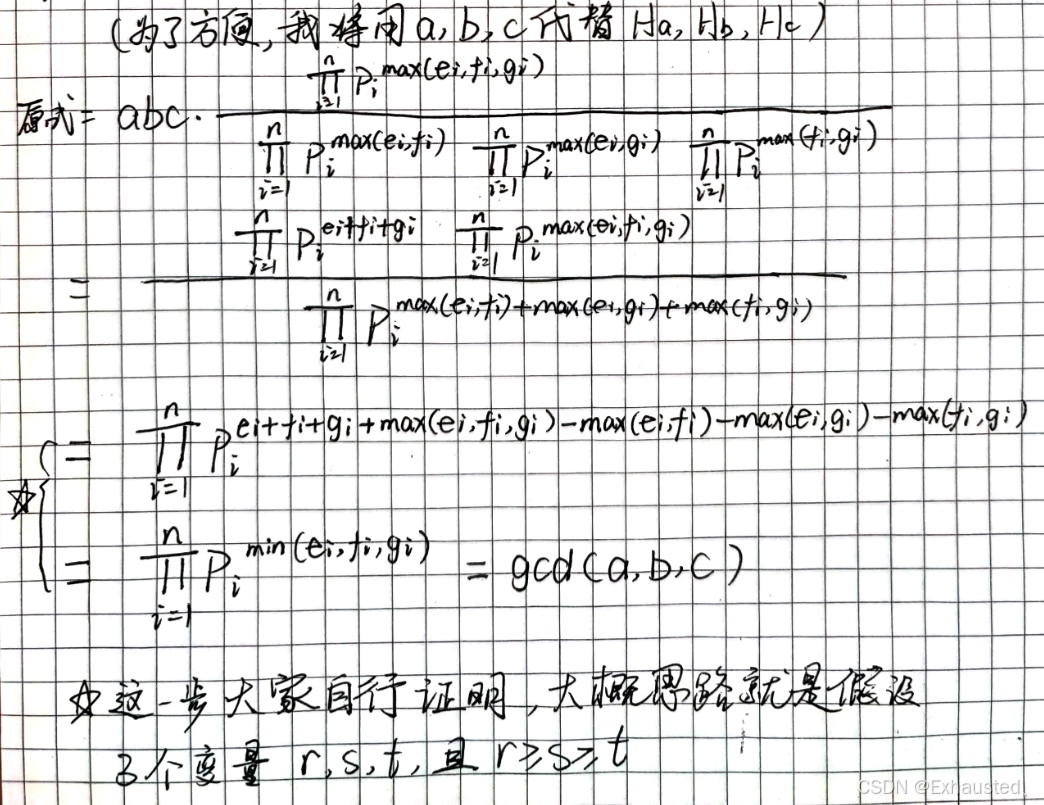 (为了方便,我将用a,b,c代替Ha,Hb,Hc)
原式= abc · \frac{\prod_{i=1}^{n} P_i^{max(ei,fi,gi)}}{\prod_{i=1}^{n} P_i^{max(ei,fi)} \prod_{i=1}^{n} P_i^{max(ei,gi)} \prod_{i=1}^{n} P_i^{max(fi,gi)}}
= \frac{\prod_{i=1}^{n} P_i^{ei+fi+gi} \prod_{i=1}^{n} P_i^{max(ei,fi,gi)}}{\prod_{i=1}^{n} P_i^{max(ei,fi)+max(ei,gi)+max(fi,gi)}}
☆ { = \prod_{i=1}^{n} P_i^{ei+fi+gi+max(ei,fi,gi)-max(ei,fi)-max(ei,gi)-max(fi,gi)}
= \prod_{i=1}^{n} P_i^{min(ei,fi,gi)} = gcd(a,b,c)
☆这一步大家自行证明,大概思路就是假设
3个变量 r,s,t,且 r≥s≥t
CSDN @Exhausted、